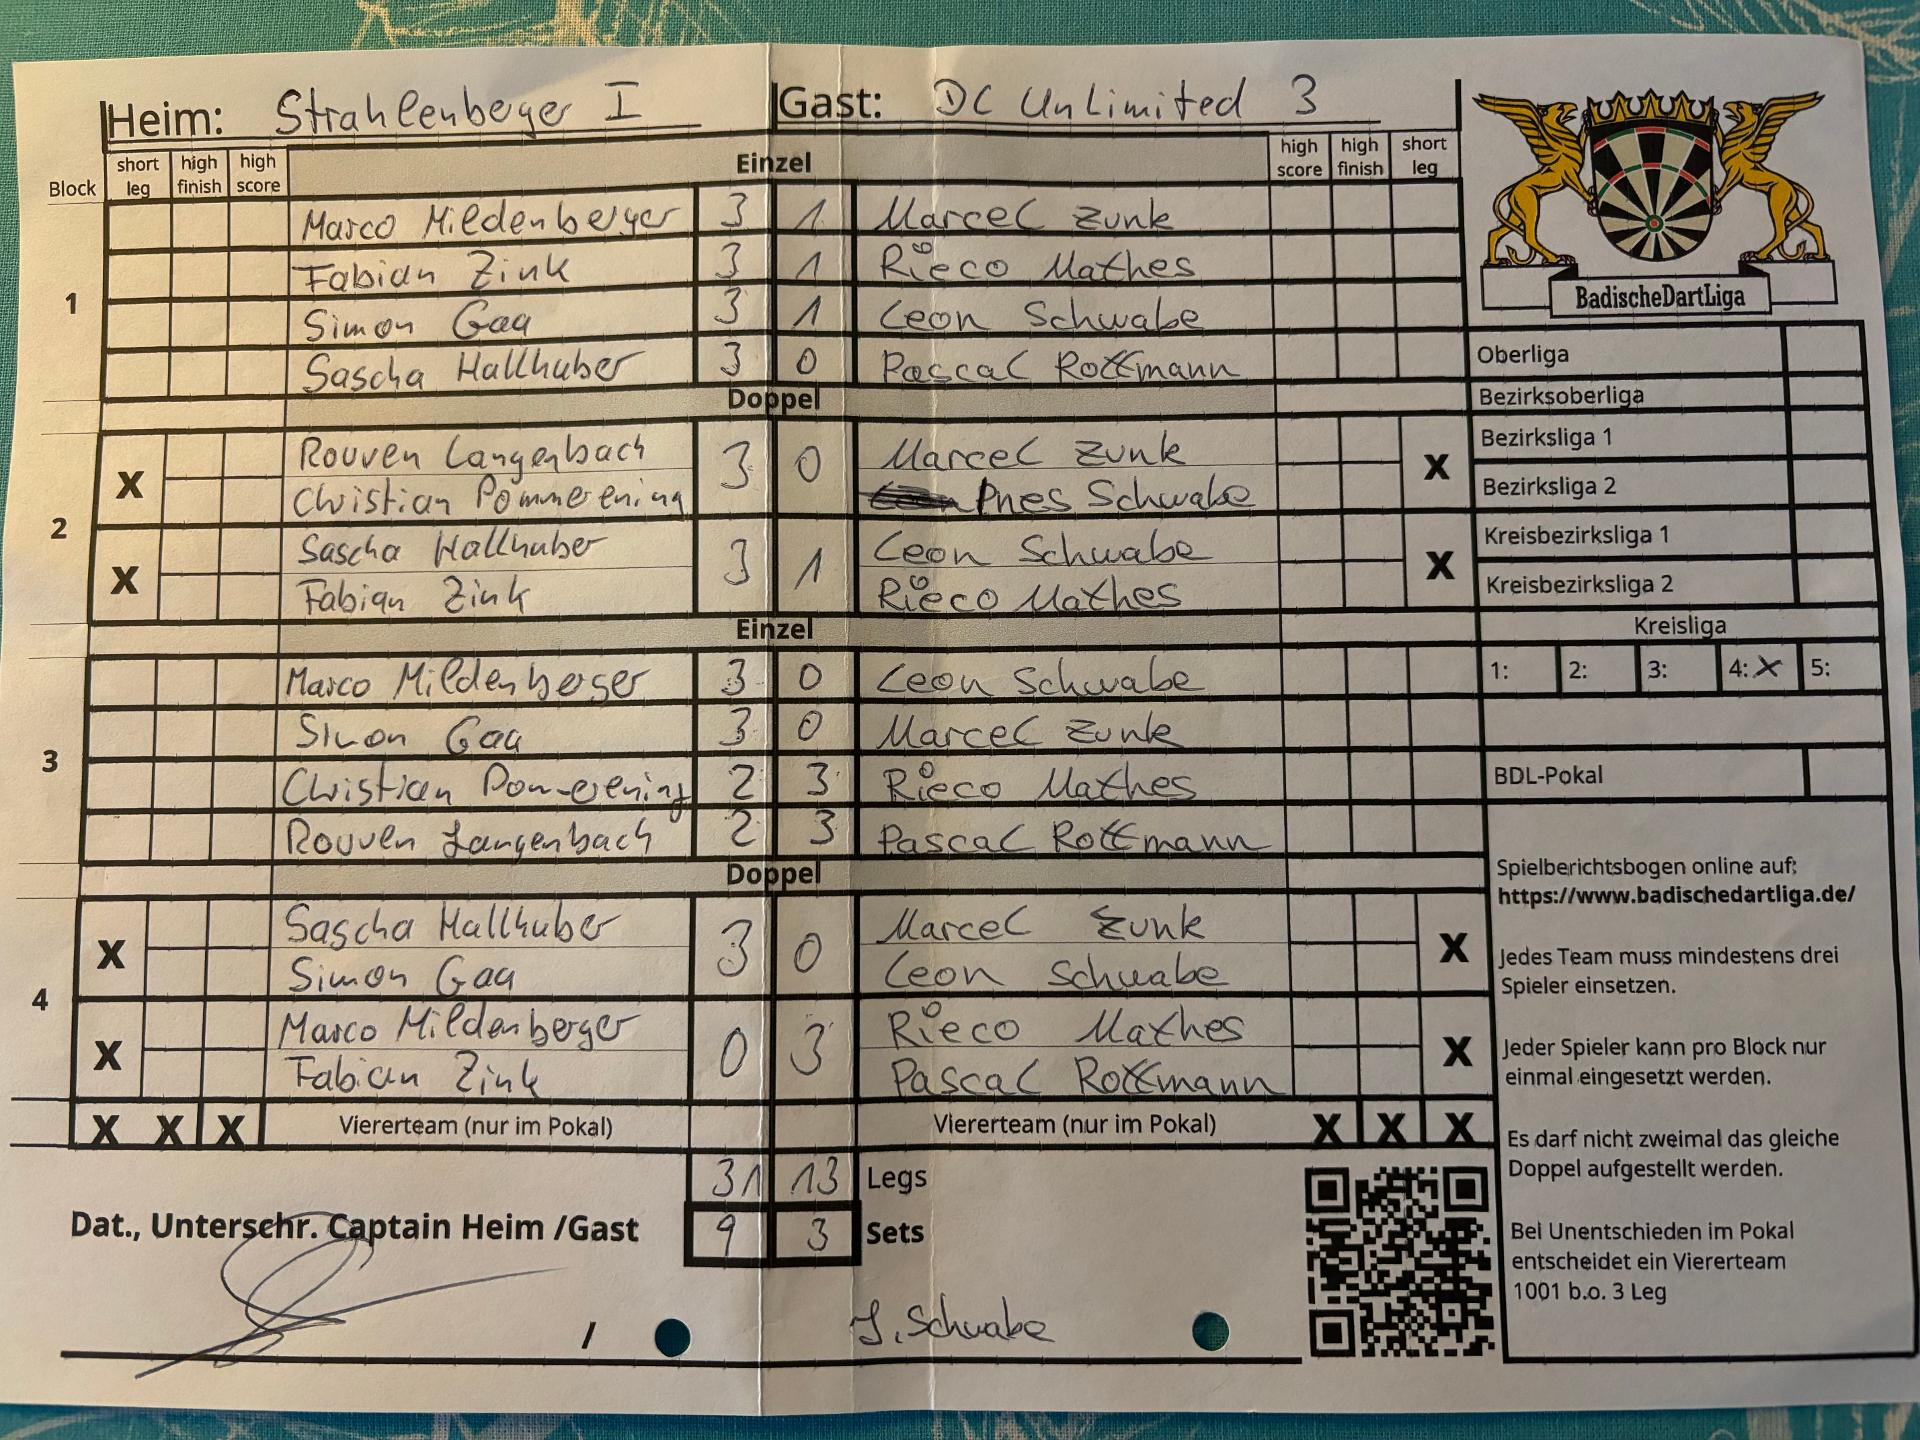 Heim: Strahlenberger I Gast: DC Unlimited 3
Block short leg high finish high score Einzel high score high finish short leg
1
Marco Mildenberger 3 1 Marcel Zunk
Fabian Zink 3 1 Rieco Mathes
Simon Gaa 3 1 Leon Schwabe
Sascha Hallhuber 3 0 Pascal Rottmann
Doppel
2
X Rouven Langenbach 3 0 Marcel Zunk X
Christian Pommerening Schwabe
X Sascha Hallhuber 3 1 Leon Schwabe X
Fabian Zink Rieco Mathes
Einzel
3
Marco Mildenberger 3 0 Leon Schwabe
Simon Gaa 3 0 Marcel Zunk
Christian Pommerening 2 3 Rieco Mathes
Rouven Langenbach 2 3 Pascal Rottmann
Doppel
4
X Sascha Hallhuber 3 0 Marcel Zunk X
Simon Gaa Leon Schwabe
X Marco Mildenberger 0 3 Rieco Mathes X
Fabian Zink Pascal Rottmann
X X X Viererteam (nur im Pokal) Viererteam (nur im Pokal) X X X
31 13 Legs
9 3 Sets
Dat., Unterschr. Captain Heim /Gast
/ J. Schwabe
BadischeDartLiga
Oberliga
Bezirksoberliga
Bezirksliga 1
Bezirksliga 2
Kreisbezirksliga 1
Kreisbezirksliga 2
Kreisliga
1: 2: 3: 4: X 5:
BDL-Pokal
Spielberichtsbogen online auf:
https://www.badischedartliga.de/
Jedes Team muss mindestens drei
Spieler einsetzen.
Jeder Spieler kann pro Block nur
einmal eingesetzt werden.
Es darf nicht zweimal das gleiche
Doppel aufgestellt werden.
Bei Unentschieden im Pokal
entscheidet ein Viererteam
1001 b.o. 3 Leg